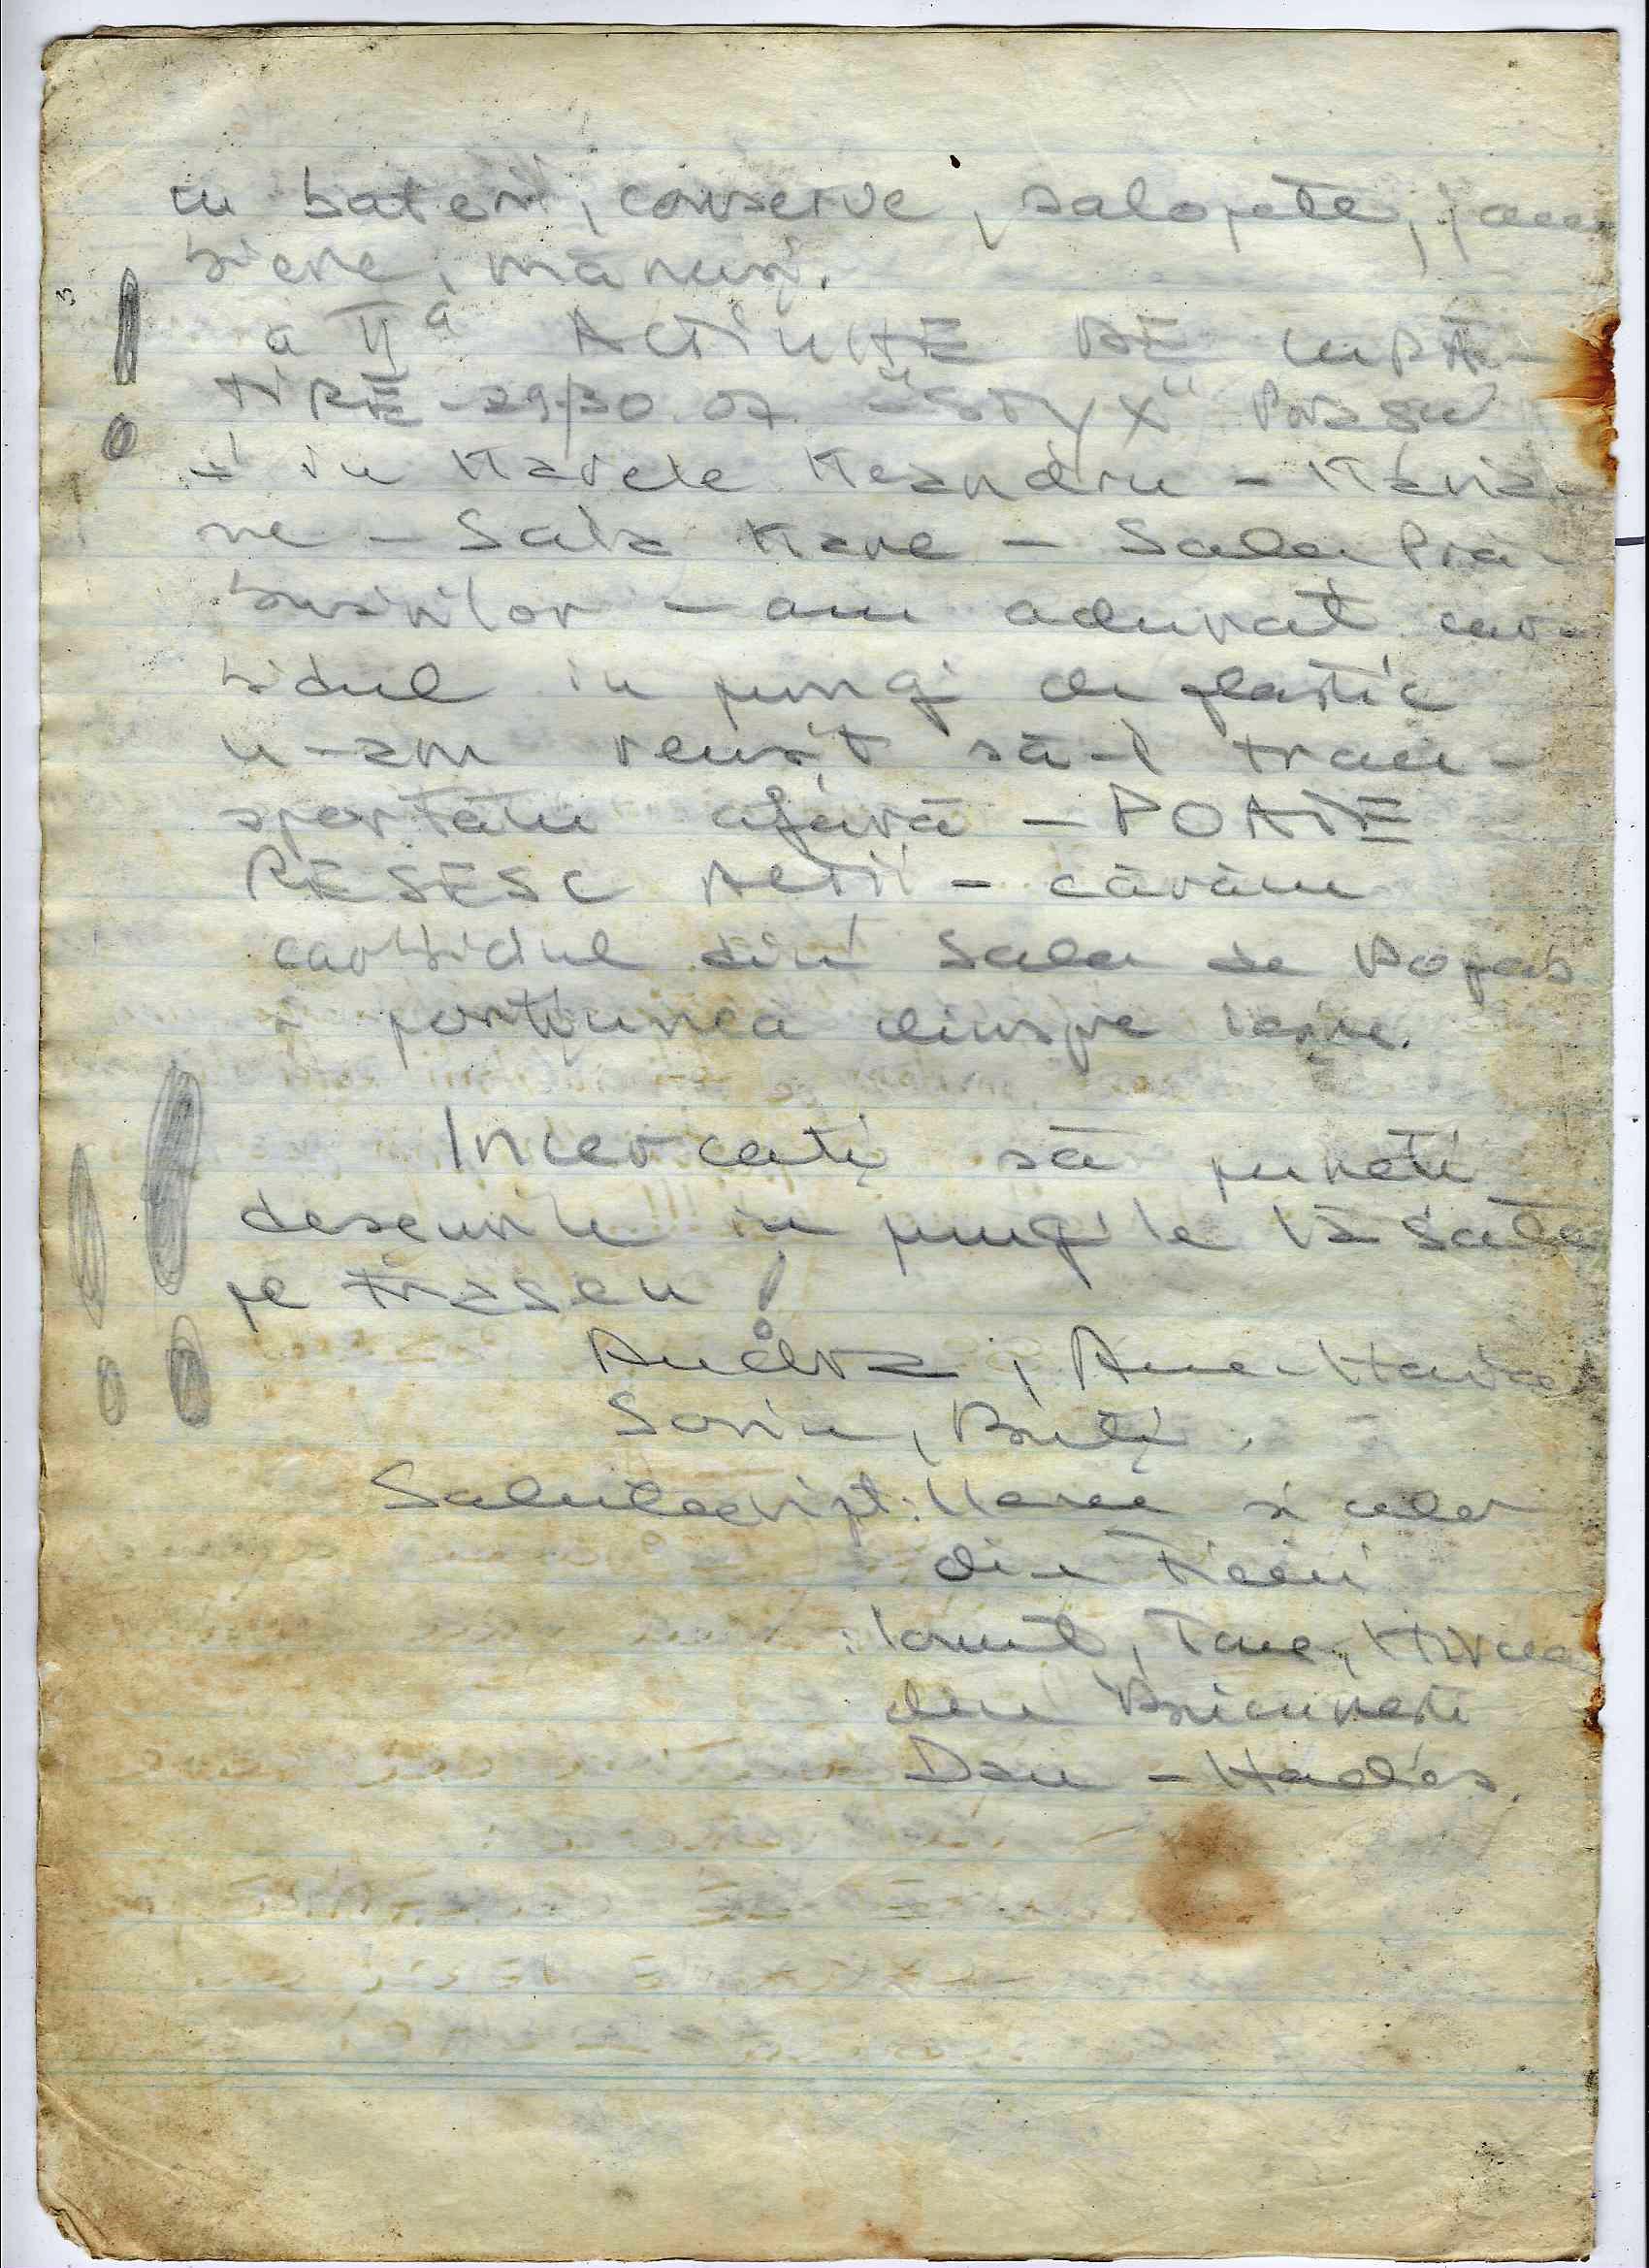 cu baterii, conserve, salopete, jam
biere, mănuși.
a II a ACTIUNE DE CURĂ-
ȚIRE - 29/30.07. "STYX" Brașov
și în Marele Meandru - Mânia
ne - Sala Mare - Sala Pră-
bușirilor - am adunat car-
bidul în pungi de plastic
n-am reușit să-l tran-
sportăm afară - POATE
REUSESC ALTII - căràm
carbidul din Sala de Popas
și porțiunea dinspre ieșire.
Încercați să puneți
deșeurile în pungile lăsate
pe traseu!
Andra, Ana-Maria
Sorin, Buți.
Salutări pt: și celor
din
: Ionuț, Tane, Mircea
din București
Dan - Hades.
3